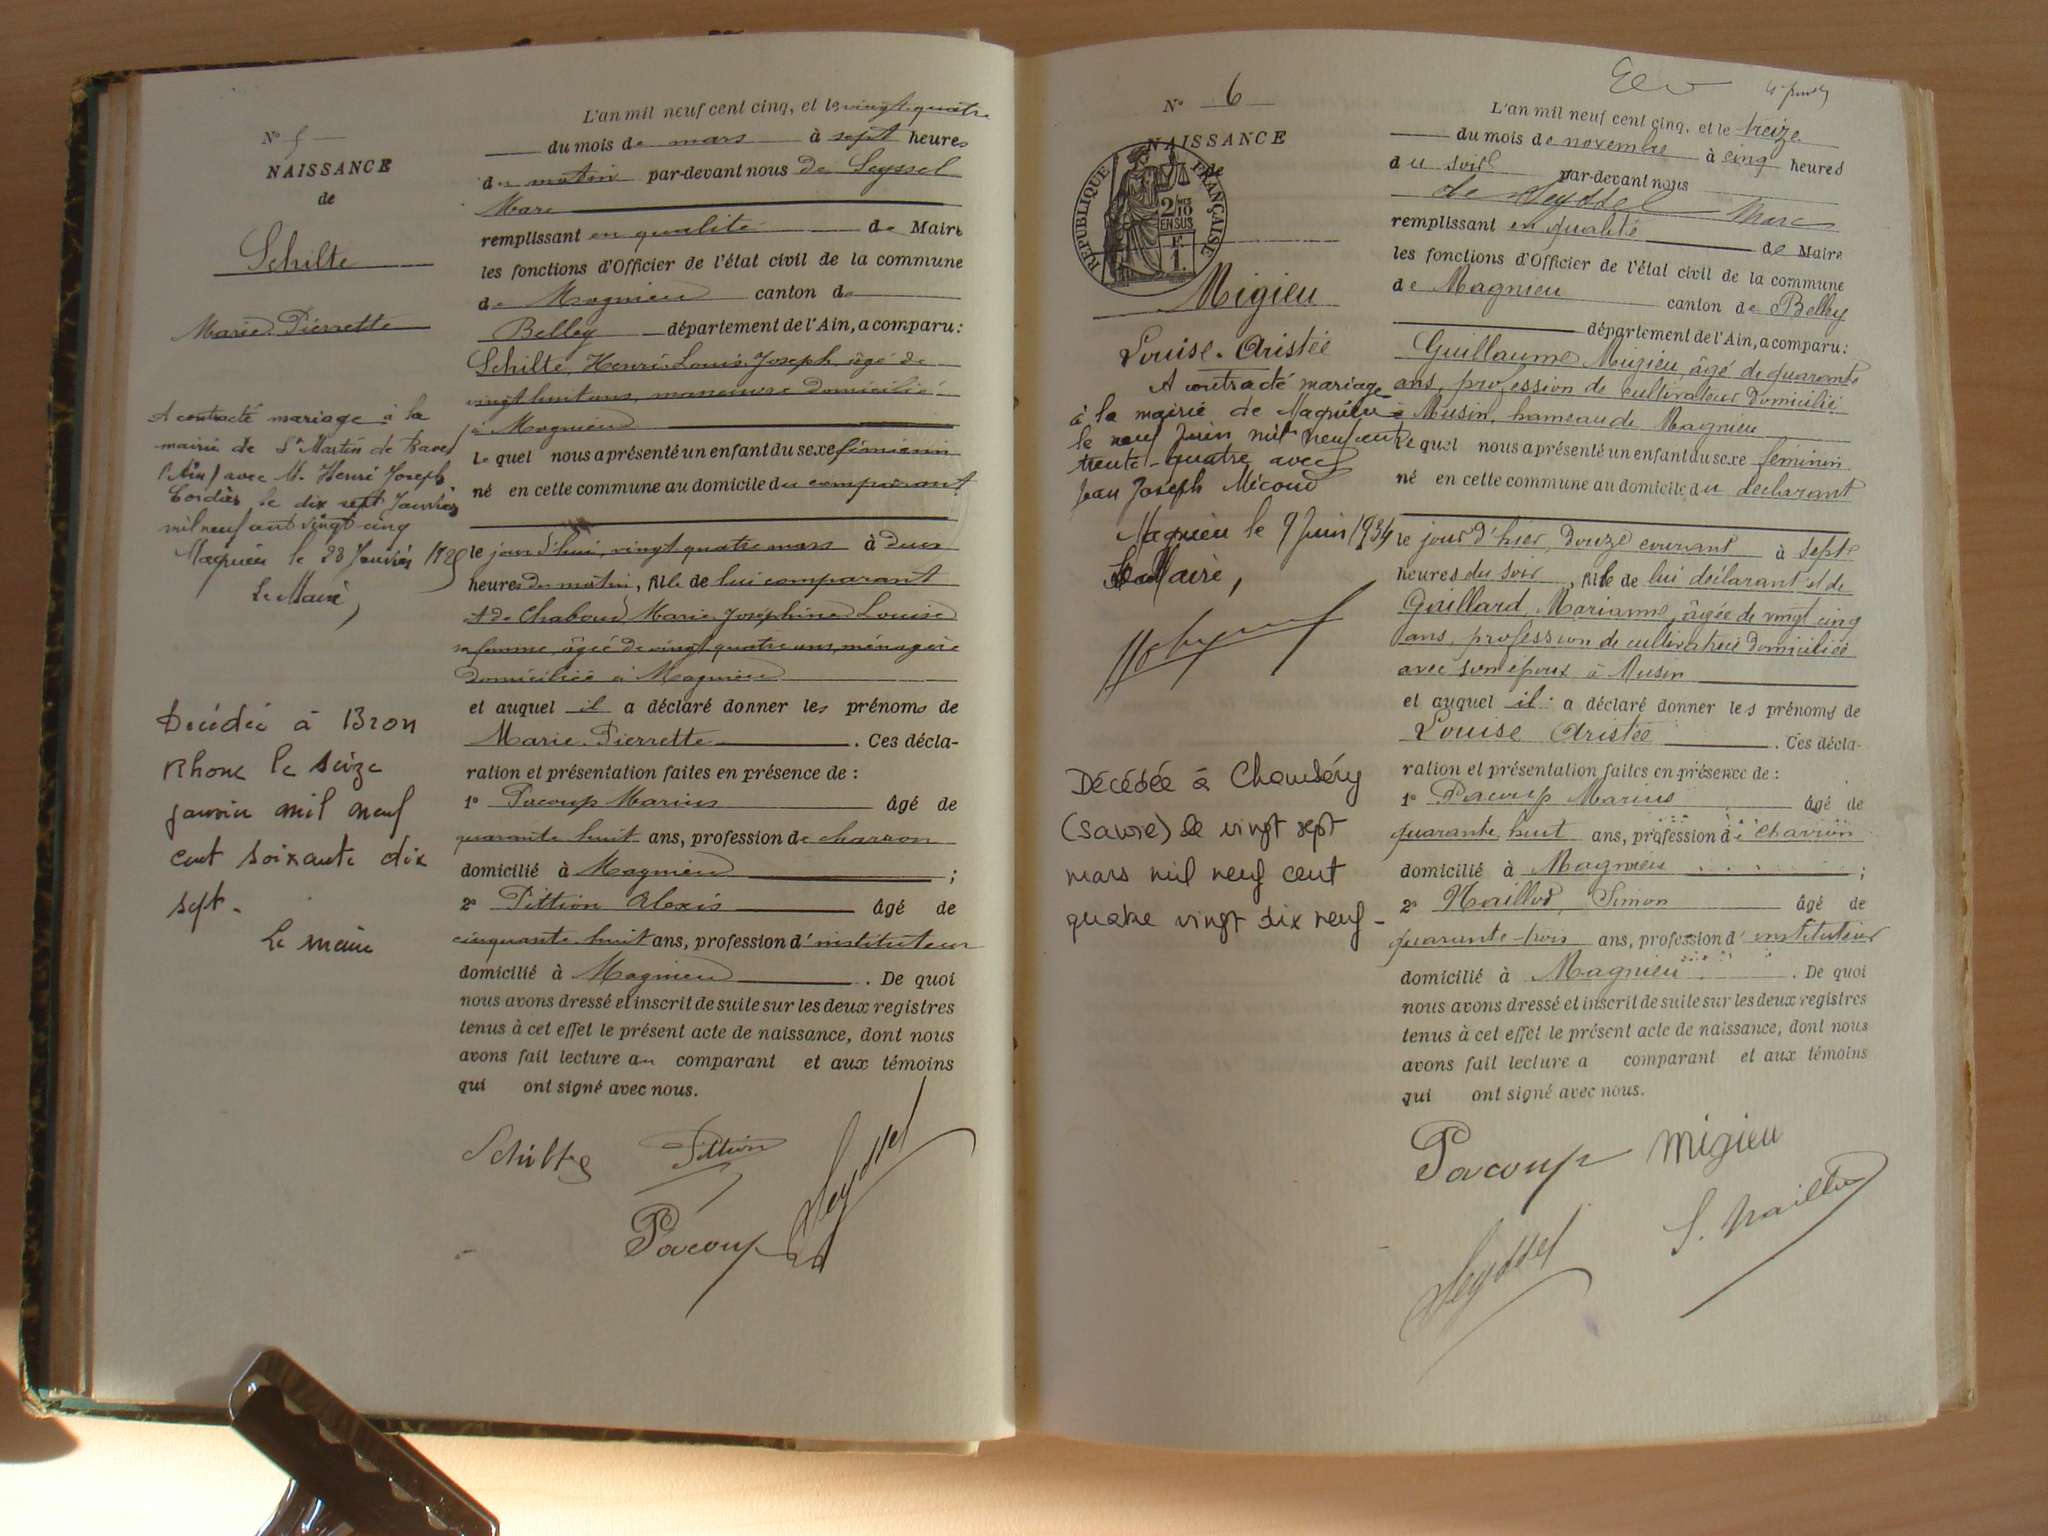 N° 5
NAISSANCE
de
Schilte
Marie Pierrette
A contracté mariage à la
mairie de St Martin de
(Ain) avec M. Henri Joseph
Cordier le dix sept Janvier
mil neuf cent vingt cinq
Magnieu le 28 Janvier 1925
Le Maire,
Décédée à Bron
Rhone le seize
janvier mil neuf
cent soixante dix
sept.
Le maire
L'an mil neuf cent cinq, et le vingt-quatre
du mois de mars à sept heures
du matin par-devant nous de Seyssel
Marc
remplissant en qualité de Maire
les fonctions d'Officier de l'état civil de la commune
de Magnieu canton de
Belley département de l'Ain, a comparu :
Schilte, Henri Louis Joseph, âgé de
vingt huit ans, manœuvre domicilié
à Magnieu
Le quel nous a présenté un enfant du sexe féminin
né en cette commune au domicile du comparant
le jour d'hui, vingt quatre mars à deux
heures du matin, fille de lui comparant
et de Chaboud Marie Joséphine Louise
sa femme, âgée de vingt quatre ans, ménagère
domiciliée à Magnieu
et auquel il a déclaré donner les prénoms de
Marie Pierrette. Ces décla-
ration et présentation faites en présence de :
1° Pacoup Marius âgé de
quarante huit ans, profession de charron
domicilié à Magnieu ;
2° Pittion Alexis âgé de
cinquante huit ans, profession d'instituteur
domicilié à Magnieu. De quoi
nous avons dressé et inscrit de suite sur les deux registres
tenus à cet effet le présent acte de naissance, dont nous
avons fait lecture au comparant et aux témoins
qui ont signé avec nous.
Schilte Pittion
Pacoup Seyssel
N° 6
NAISSANCE
de
RÉPUBLIQUE FRANÇAISE
2/10
EN SUS
F.
1.
Migieu
Louise Aristée
A contracté mariage
à la mairie de Magnieu
le neuf Juin mil neuf cent
trente-quatre avec
Jean Joseph Micoud
Magnieu le 9 Juin 1934
Le Maire,
Décédée à Chambéry
(Savoie) le vingt sept
mars mil neuf cent
quatre vingt dix neuf -
L'an mil neuf cent cinq, et le treize
du mois de novembre à cinq heures
du soir par-devant nous
de Seyssel Marc
remplissant en qualité de Maire
les fonctions d'Officier de l'état civil de la commune
de Magnieu canton de Belley
département de l'Ain, a comparu :
Guillaume Migieu, âgé de quarante
ans, profession de cultivateur domicilié
à Musin, hameau de Magnieu
Le quel nous a présenté un enfant du sexe féminin
né en cette commune au domicile du déclarant
le jour d'hier, douze courant à sept
heures du soir, fille de lui déclarant et de
Gaillard, Marianne, âgée de vingt cinq
ans, profession de cultivatrice domiciliée
avec son époux à Musin
et auquel il a déclaré donner les prénoms de
Louise Aristée. Ces décla-
ration et présentation faites en présence de :
1° Pacoup Marius âgé de
quarante huit ans, profession de charron
domicilié à Magnieu ;
2° Naillod, Simon âgé de
quarante-trois ans, profession d'instituteur
domicilié à Magnieu. De quoi
nous avons dressé et inscrit de suite sur les deux registres
tenus à cet effet le présent acte de naissance, dont nous
avons fait lecture a comparant et aux témoins
qui ont signé avec nous.
Pacoup Migieu
Seyssel S. Naillod